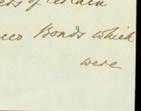 of certain
Bonds which
were